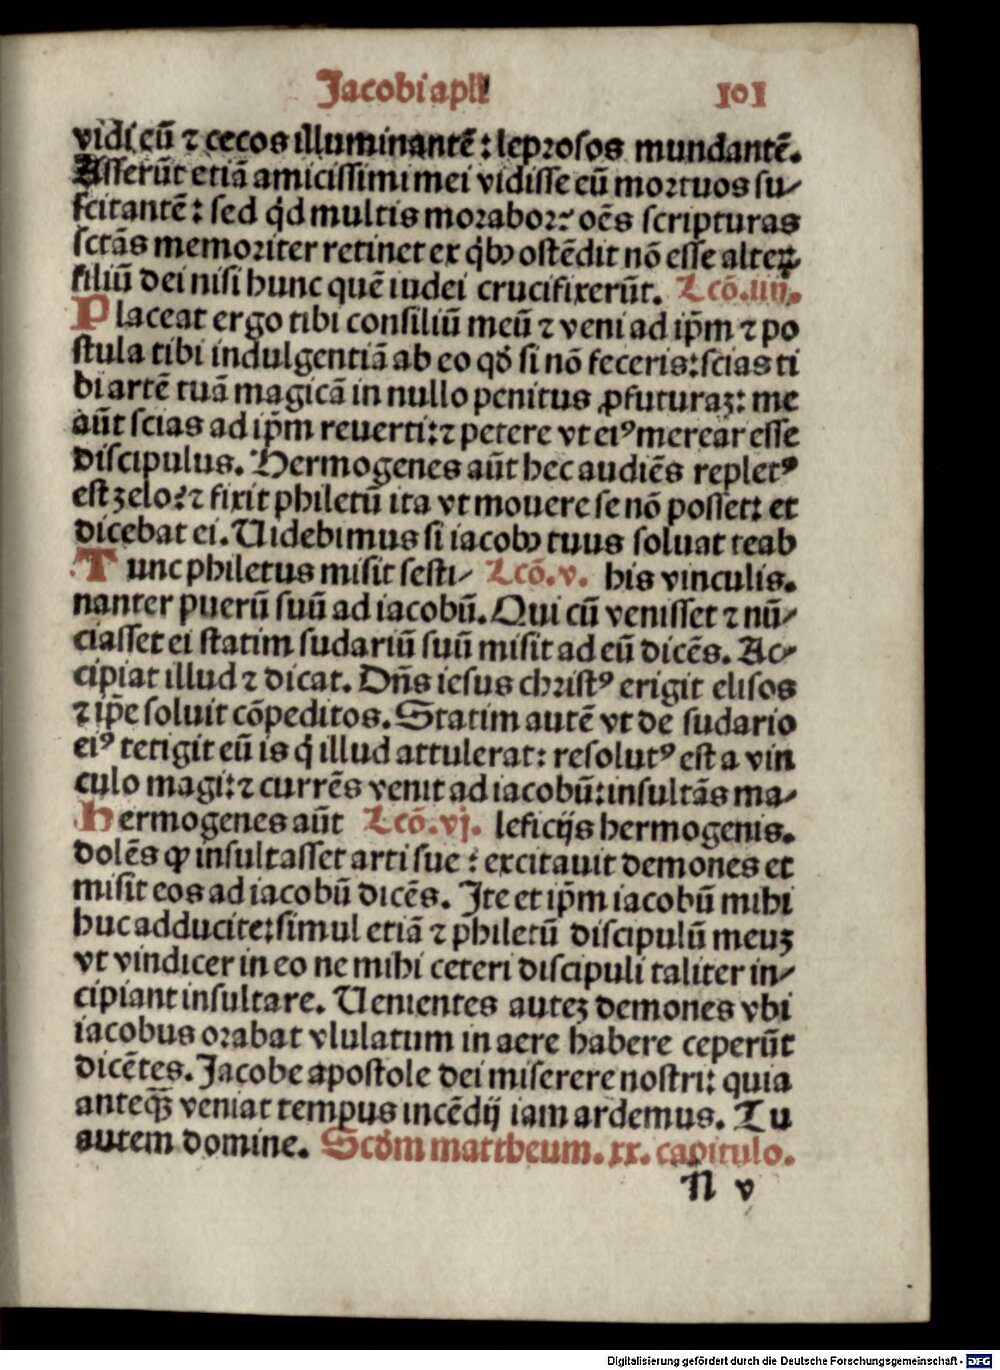 Jacobi apli
101
vidi eū ⁊ cecos illuminantē: leprosos mundantē.
Asserūt etiā amicissimi mei vidisse eū mortuos su⸗
scitantē: sed qͥd multis morabor: oēs scripturas
sctās memoriter retinet ex qͥbꝰ ostēdit nō esse alteꝝ
filiū dei nisi hunc quē iudei crucifixerūt. Lcō.iiij.
Placeat ergo tibi consiliū meū ⁊ veni ad ip̄m ⁊ po
stula tibi indulgentiā ab eo qd̓ si nō feceris: scias ti
bi artē tuā magicā in nullo penitus ꝓfuturaꝫ: me
aūt scias ad ip̄m reuerti: ⁊ petere vt eiꝰ merear esse
discipulus. Hermogenes aūt hec audiēs repletꝰ
est zelo: ⁊ fixit philetū ita vt mouere se nō posset: et
dicebat ei. Uidebimus si iacobꝰ tuus soluat te ab
Tunc philetus misit festi⸗ Lcō.v. his vinculis.
nanter puerū suū ad iacobū. Qui cū venisset ⁊ nū⸗
ciasset ei statim sudariū suū misit ad eū dicēs. Ac⸗
cipiat illud ⁊ dicat. Dn̄s iesus christꝰ erigit elisos
⁊ ip̄e soluit cōpeditos. Statim autē vt de sudario
eiꝰ tetigit eū is qͥ illud attulerat: resolutꝰ est a vin
culo magi: ⁊ currēs venit ad iacobū: insultās ma⸗
Hermogenes aūt Lcō.vj. leficijs hermogenis.
dolēs ꝙ insultasset arti sue: excitauit demones et
misit eos ad iacobū dicēs. Ite et ip̄m iacobū mihi
huc adducite: simul etiā ⁊ philetū discipulū meuꝫ
vt vindicer in eo ne mihi ceteri discipuli taliter in⸗
cipiant insultare. Uenientes auteꝫ demones vbi
iacobus orabat vlulatum in aere habere ceperūt
dicētes. Jacobe apostole dei miserere nostri: quia
anteqͣ̄ veniat tempus incēdij iam ardemus. Tu
autem domine. Scd̓m mattheum.xx.capitulo.
N v
Digitalisierung gefördert durch die Deutsche Forschungsgemeinschaft - DFG